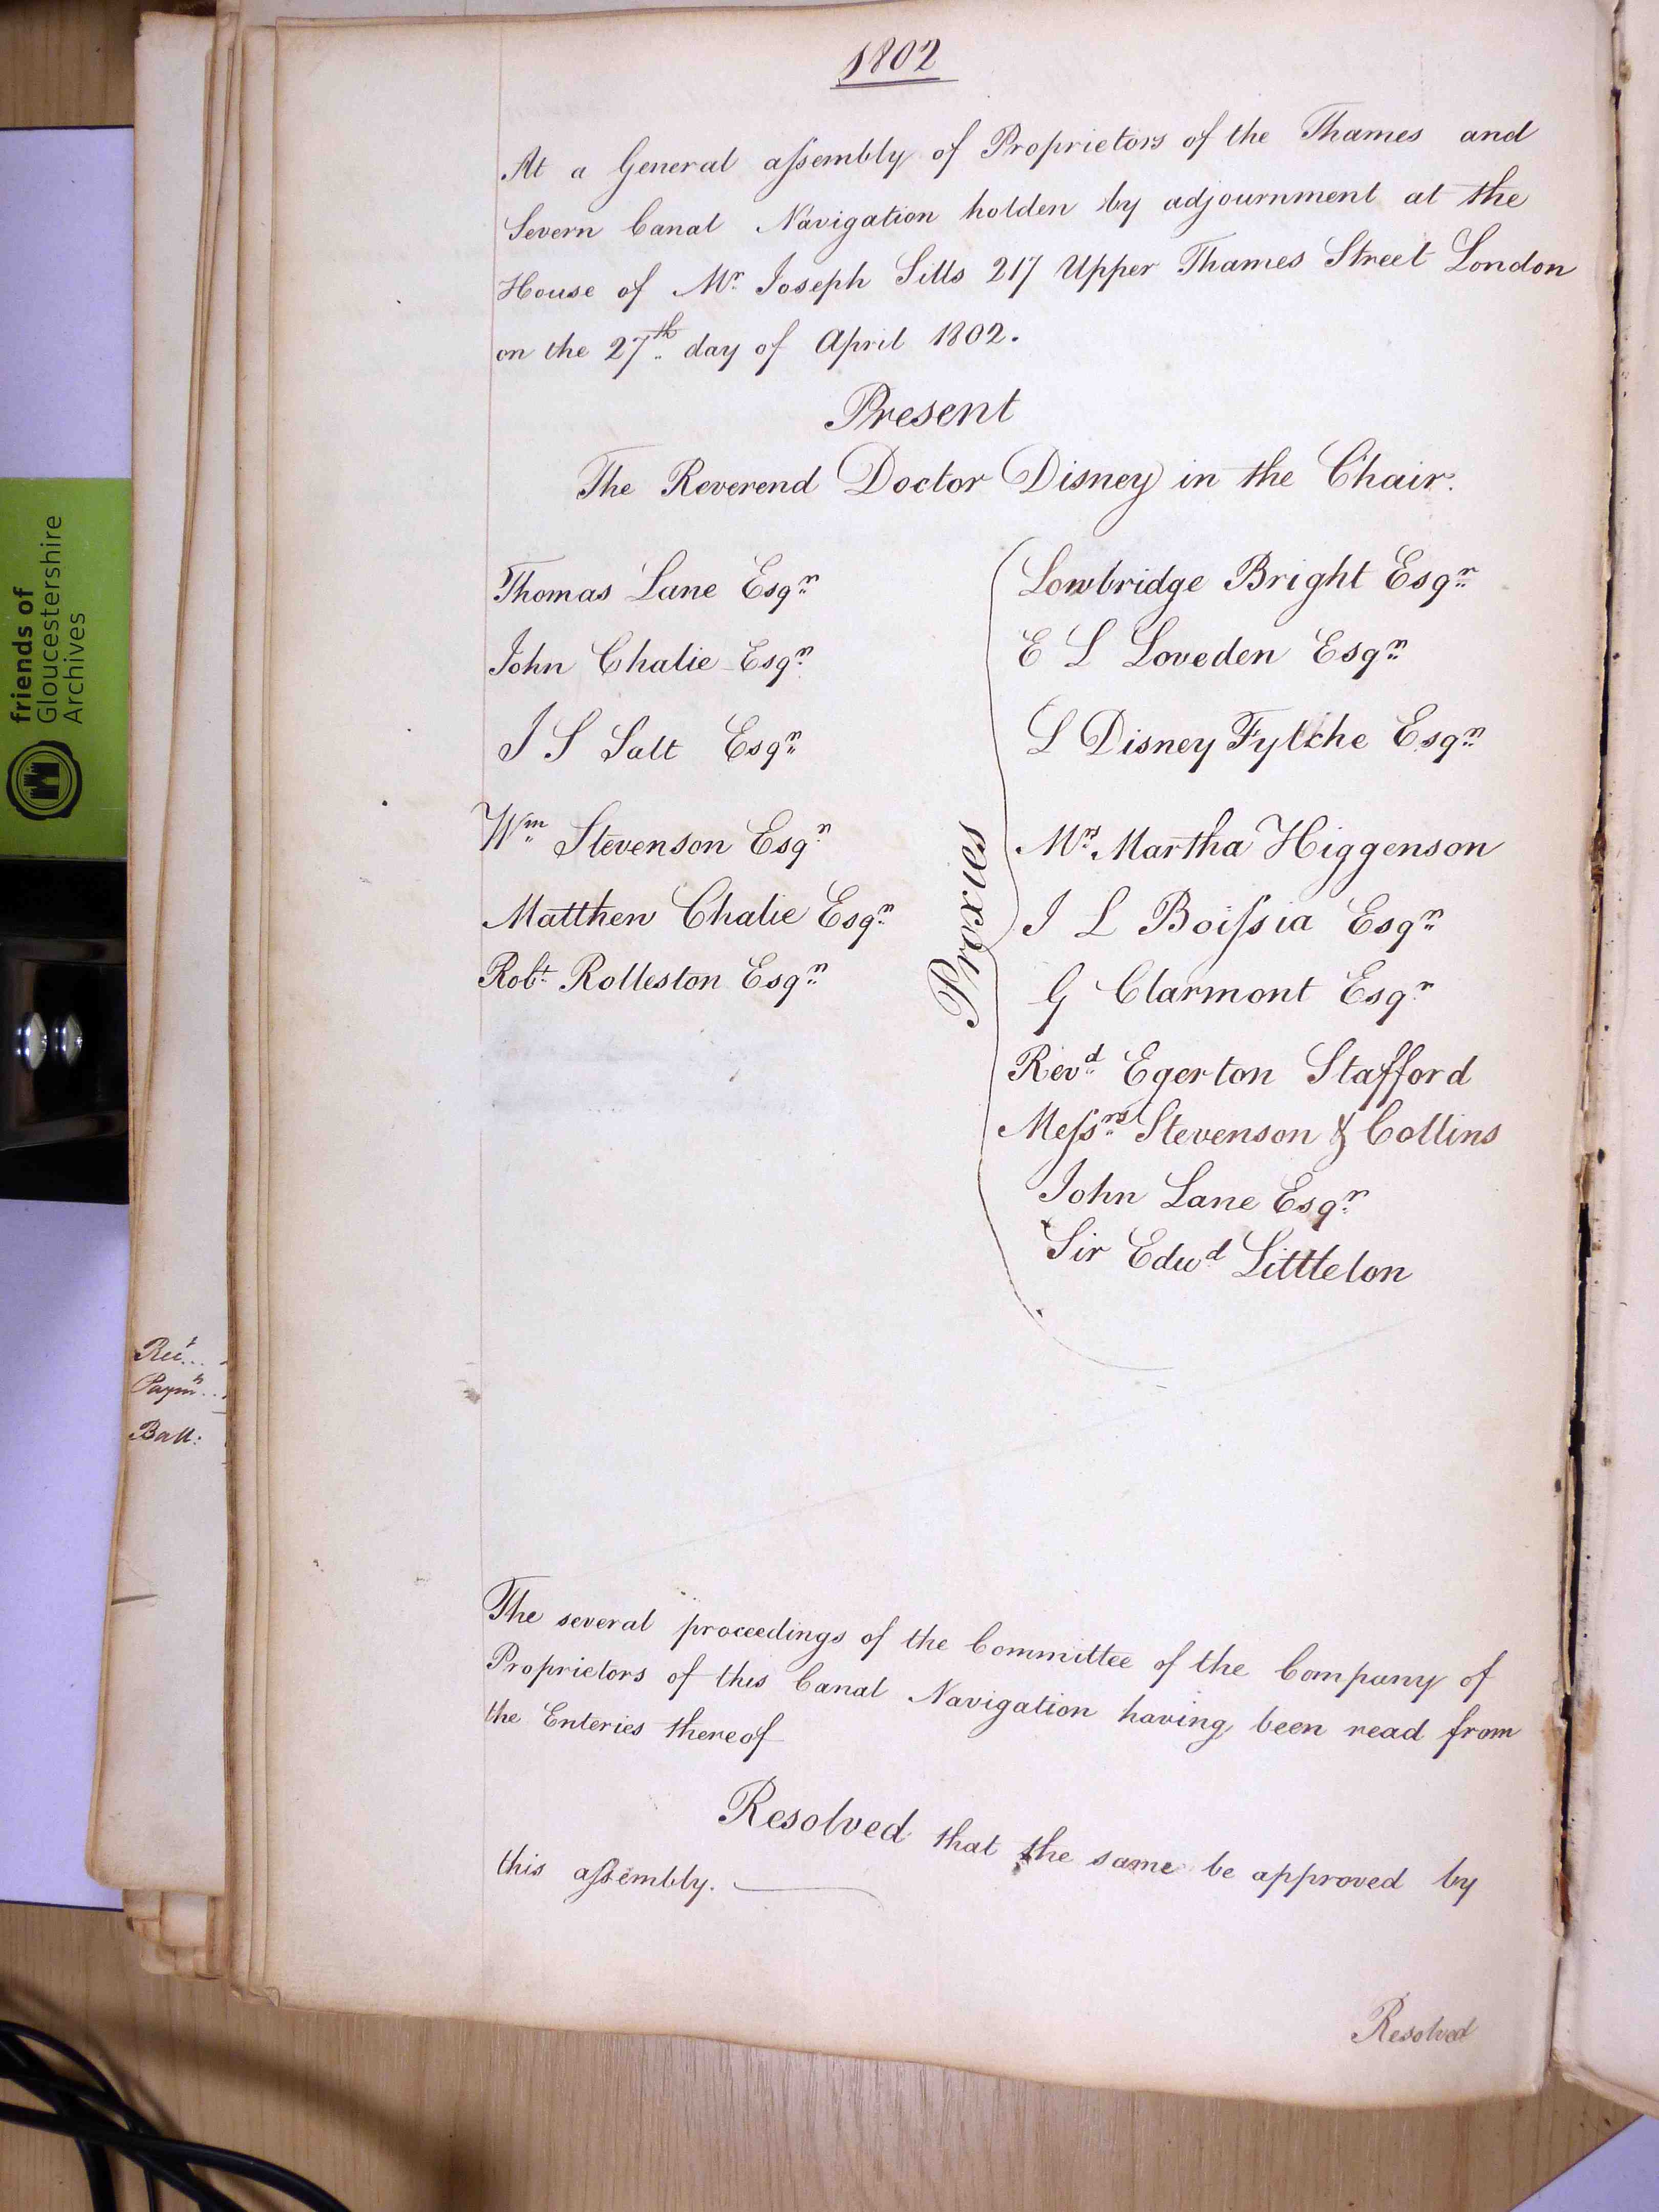 1802
At a General assembly of Proprietors of the Thames and
Severn Canal Navigation holden by adjournment at the
House of Mr. Joseph Sills 217 Upper Thames Street London
on the 27th. day of April 1802.
Present
The Reverend Doctor Disney in the Chair.
Thomas Lane Esqr.
John Chalie Esqr.
J S Salt Esqr.
Wm. Stevenson Esqr.
Matthew Chalie Esqr.
Robt. Rolleston Esqr.
Proxies
Lowbridge Bright Esqr.
E L Loveden Esqr.
L Disney Fytche Esqr.
Mrs. Martha Higgenson
J L Boissia Esqr.
G Clarmont Esqr.
Revd. Egerton Stafford
Messrs. Stevenson & Collins
John Lane Esqr.
Sir Edwd Littleton
The several proceedings of the Committee of the Company of
Proprietors of this Canal Navigation having been read from
the Enteries thereof
Resolved that the same be approved by
this assembly.
Resolved
Rect...
Paymts..
Ball:
friends of
Gloucestershire
Archives